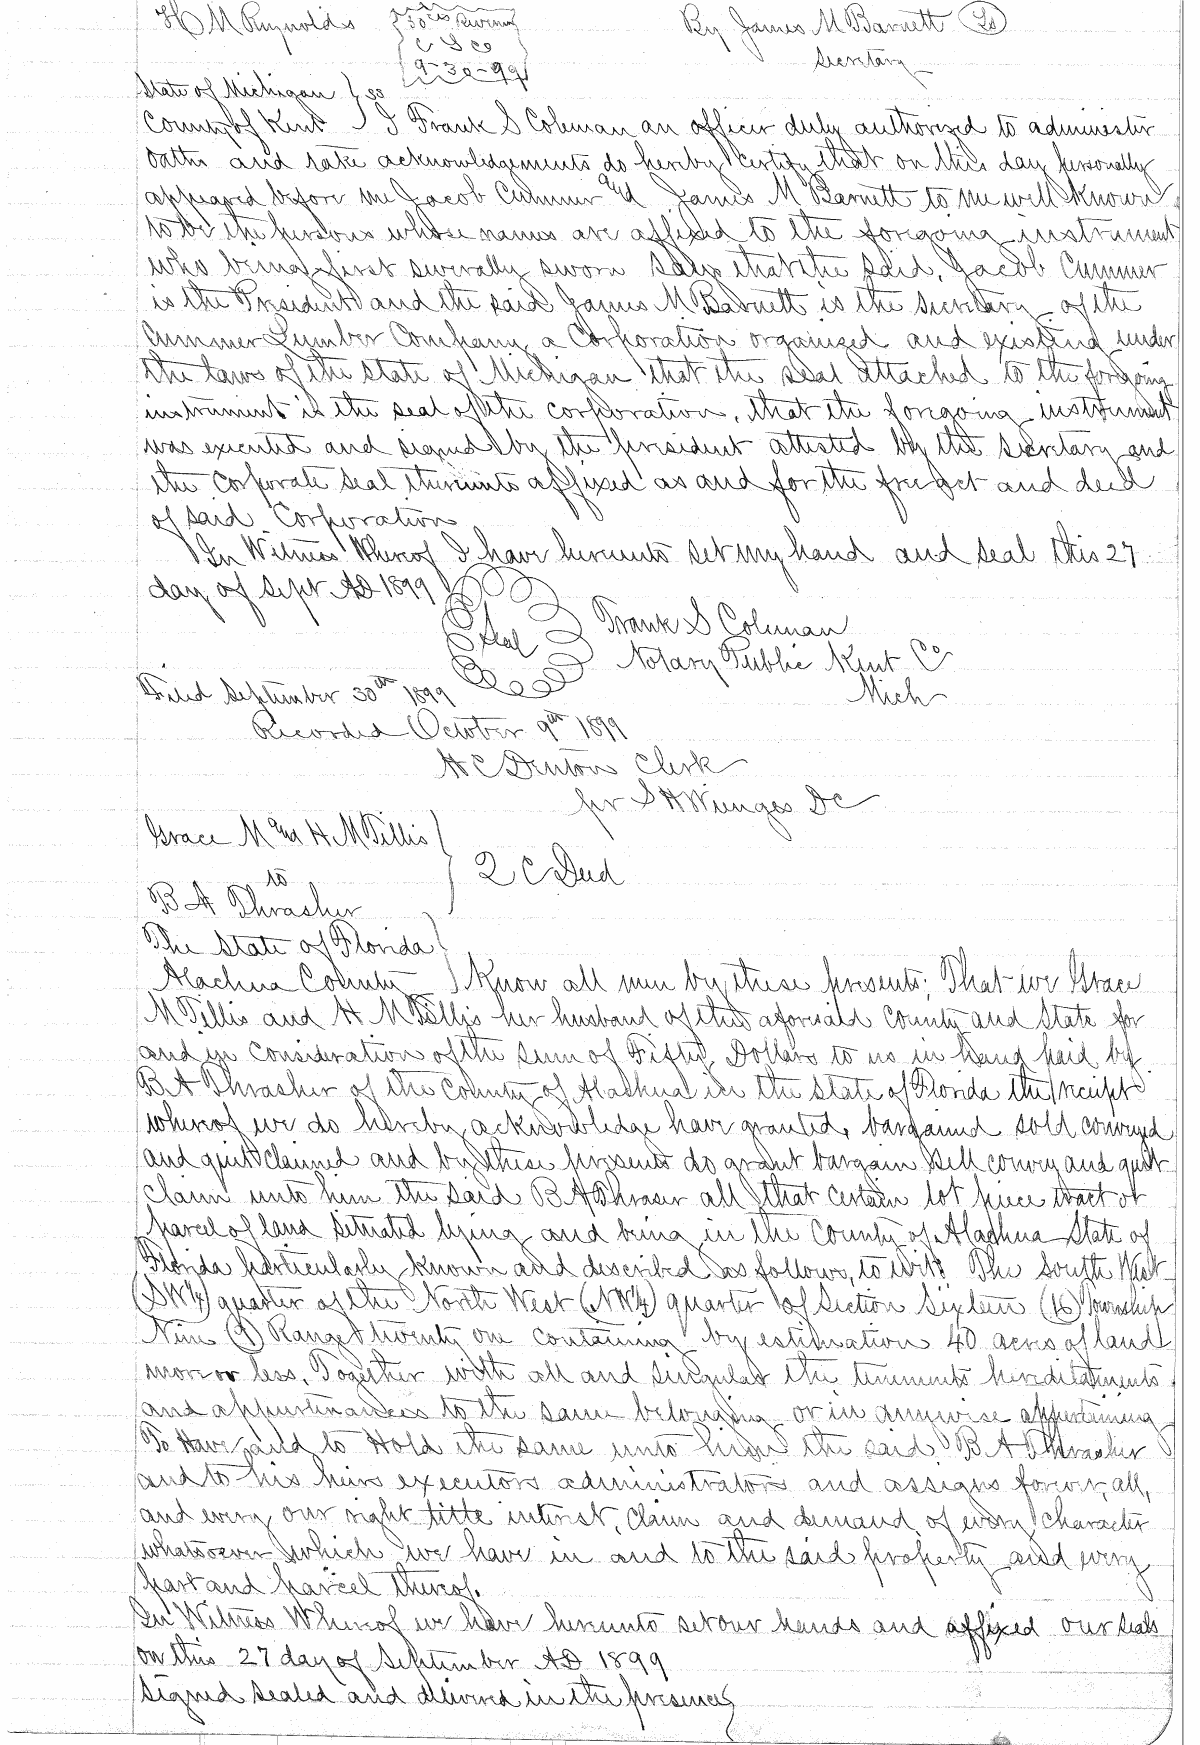 H M Reynolds 30cts Revenue By James M Barnett LS
C L Co Secretary
9-30-99
State of Michigan } ss
County of Kent } I Frank S Coleman an officer duly authorized to administer
oaths and take acknowledgements do hereby certify that on this day personally
appeared before me Jacob Cummer and James M Barnett to me well known
to be the persons whose names are affixed to the foregoing instrument
who being first severally sworn says that the said, Jacob Cummer
is the President and the said James M Barnett is the Secretary of the
Cummer Lumber Company a Corporation organized and existing under
the laws of the State of Michigan that the seal attached to the foregoing
instrument is the seal of the corporation, that the foregoing instrument
was executed and signed by the president attested by the secretary and
the corporate seal thereunto affixed as and for the free act and deed
of said Corporation
In Witness Whereof I have hereunto set my hand and seal this 27
day of Sept AD 1899
Seal Frank S Coleman
Notary Public Kent Co
Mich
Filed September 30th 1899
Recorded October 9th 1899
H C Denton Clerk
per S H Wienges DC
Grace M and H M Tillis }
to } Q C Deed
B A Thrasher
The State of Florida }
Alachua County } Know all men by these presents; That we Grace
M Tillis and H M Tillis her husband of the aforesaid County and State for
and in consideration of the sum of Fifty Dollars to us in hand paid by
B A Thrasher of the County of Alachua in the State of Florida the receipt
whereof we do hereby acknowledge have granted, bargained sold conveyed
and quit claimed and by these presents do grant bargain sell convey and quit
claim unto him the said B A Thraser all that certain lot piece tract or
parcel of land situated lying and being in the County of Alachua State of
Florida particularly known and described as follows, to wit: The South West
(SW¼) quarter of the North West (NW¼) quarter of Section Sixteen (16) Township
Nine (9) Range twenty one containing by estimation 40 acres of land
more or less, Together with all and singular the tenements hereditaments
and appurtenances to the same belonging or in anywise appertaining
To Have and to Hold the same unto him the said B A Thrasher
and to his heirs executors administrators and assigns forever, all,
and every our right title interest, claim and demand of every character
whatsoever which we have in and to the said property and every
part and parcel thereof.
In Witness Whereof we have hereunto set our hands and affixed our seals
on this 27 day of September AD 1899
Signed sealed and delivered in the presence